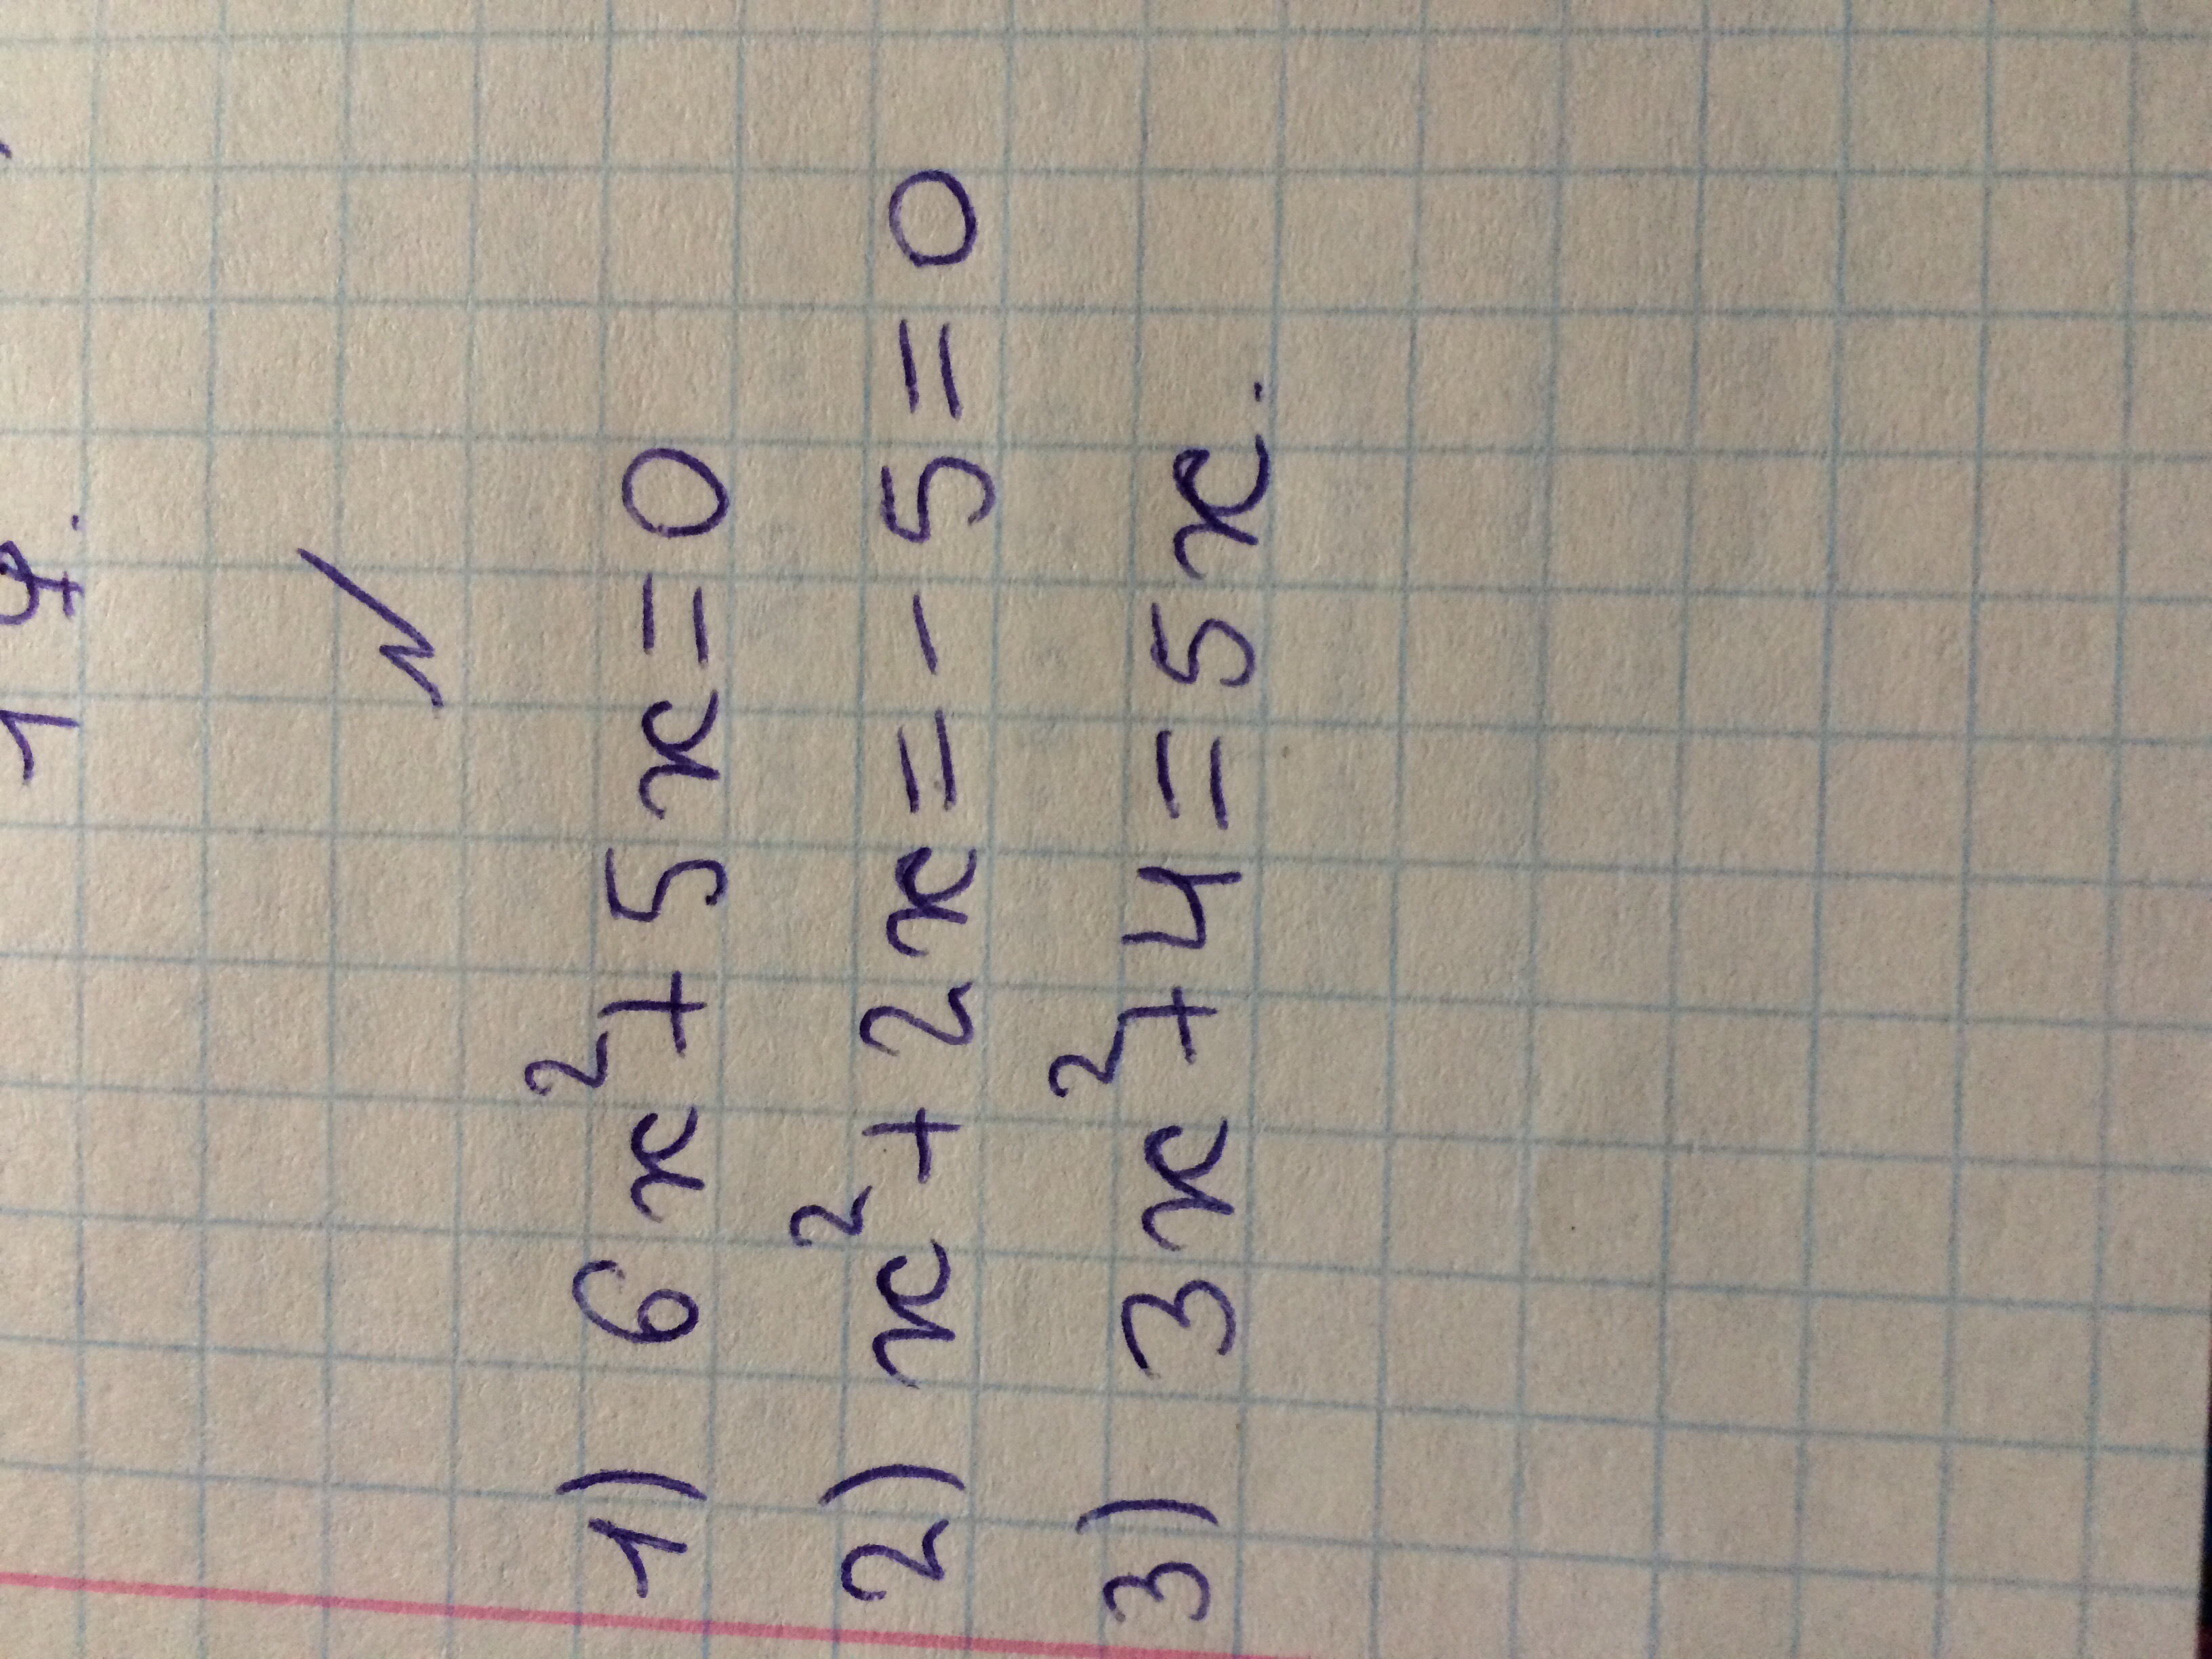 1) 6x²+5x=0
2) x²+2x=-5=0
3) 3x²+4=5x.